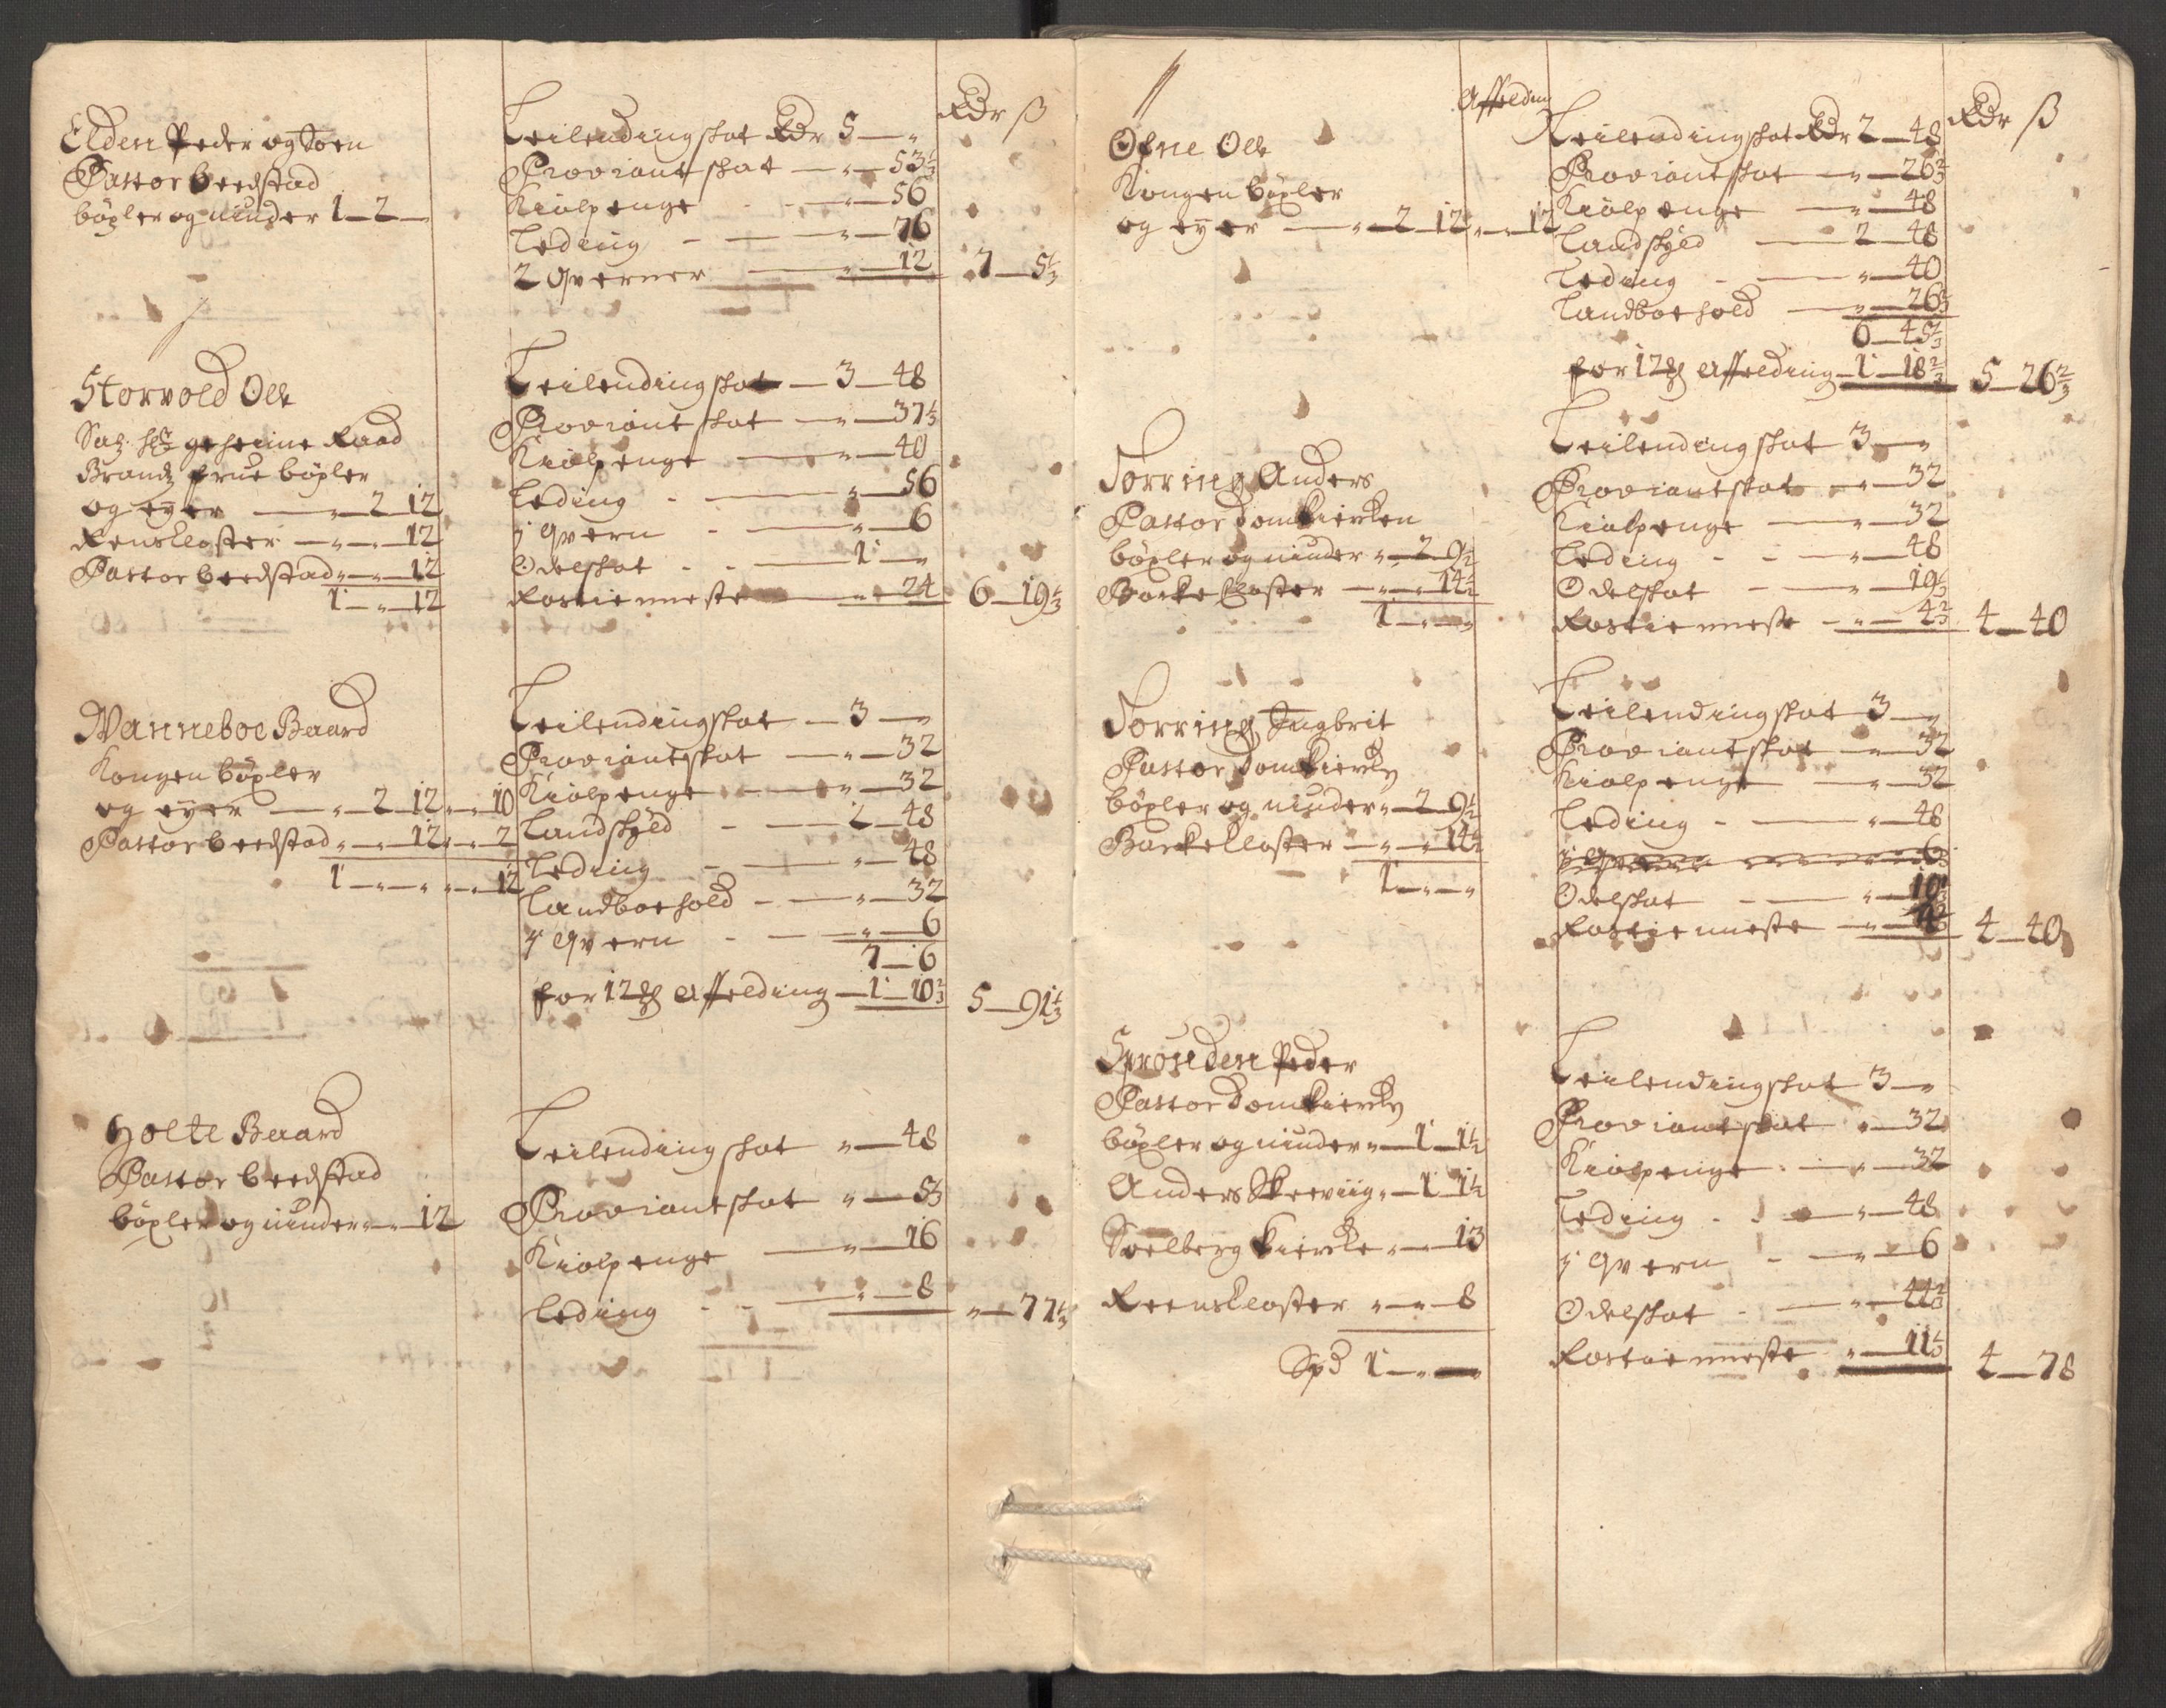 Rdr ß
Elden Peder og Joen
Pastor Beedstad
böxler og niuder 1 — 2 —
Leilendingskat Rdr 5 — "
Proviantskat — " — 53 1/3
Kiölpenge — " — 56
Leding — " — 76
2 Qverner — " — 12   7 — 5 1/3
Storvold Olle
Sal. Hr geheime Raad
Brandz frue böxler
og eyer — " — 2 12
Renskloster — " — " 12
Pastor Beedstad " — " 12
1 — " — 12
Leilendingskat — 3 — 48
Proviantskat — " — 37 1/3
Kiölpenge — " — 40
Leding — " — 56
j Qvern — " — 6
Odelskat — 1 — "
Rostieneste — " — 24   6 — 19 1/3
Wanneboe Baard
Kongen böxler
og eyer — " — 2 12 " — " 10
Pastor Beedstad " — " 12 " — " 2
1 — " — " — " 12
Leilendingskat — 3 — "
Proviantskat — " — 32
Kiölpenge — " — 32
Landskyld — 2 — 48
Leding — " — 48
Landboehold — " — 32
j Qvern — " — 6
7 — 6
for 12 Affelding — 1 — 10 2/3   5 — 91 1/3
Holte Baard
Pastor Beedstad
böxler og niuder " — " 12
Leilendingskat " — 48
Proviantskat " — 5 1/3
Kiölpenge — " — 16
Leding — " — 8   " — 77 1/3
Affelding
Rdr ß
Øfne Olle
Kongen böxler
og eyer — " — 2 12 " — " 12
Leilendingskat Rdr 2 — 48
Proviantskat — " — 26 2/3
Kiölpenge — " — 48
Landskyld — 2 — 48
Leding — " — 40
Landboehold — " — 26 2/3
6 — 45 1/3
for 12 Affelding — 1 — 18 2/3   5 — 26 2/3
Torring Anders
Pastor Domkierken
böxler og niuder " — 2 9 1/2
Backe Closter — " — " 14 1/2
1 — " — "
Leilendingskat 3 — "
Proviantskat — " — 32
Kiölpenge — " — 32
Leding — " — 48
Odelskat — " — 19 1/3
Rostieneste — " — 4 2/3   4 — 40
Torring Ingbrit
Pastor Domkierken
böxler og niuder " — 2 9 1/2
Backe Closter — " — " 14 1/2
1 — " — "
Leilendingskat 3 — "
Proviantskat — " — 32
Kiölpenge — " — 32
Leding — " — 48
j Qvern — " — 6
Odelskat — " — 19 1/3
Rostieneste — " — 4 2/3   4 — 40
Sprouden Peder
Pastor Domkierken
böxler og niuder " — 1 1 1/2
Anders Skeeviig " — 1 1 1/2
Soelberg Kiercke " — " 13
Reenskloster " — " 8
Spd 1 — " — "
Leilendingskat 3 — "
Proviantskat " — 32
Kiölpenge — " — 32
Leding — " — 48
j Qvern — " — 6
Odelskat — " — 44 2/3
Rostieneste " — 11 1/3   4 — 78